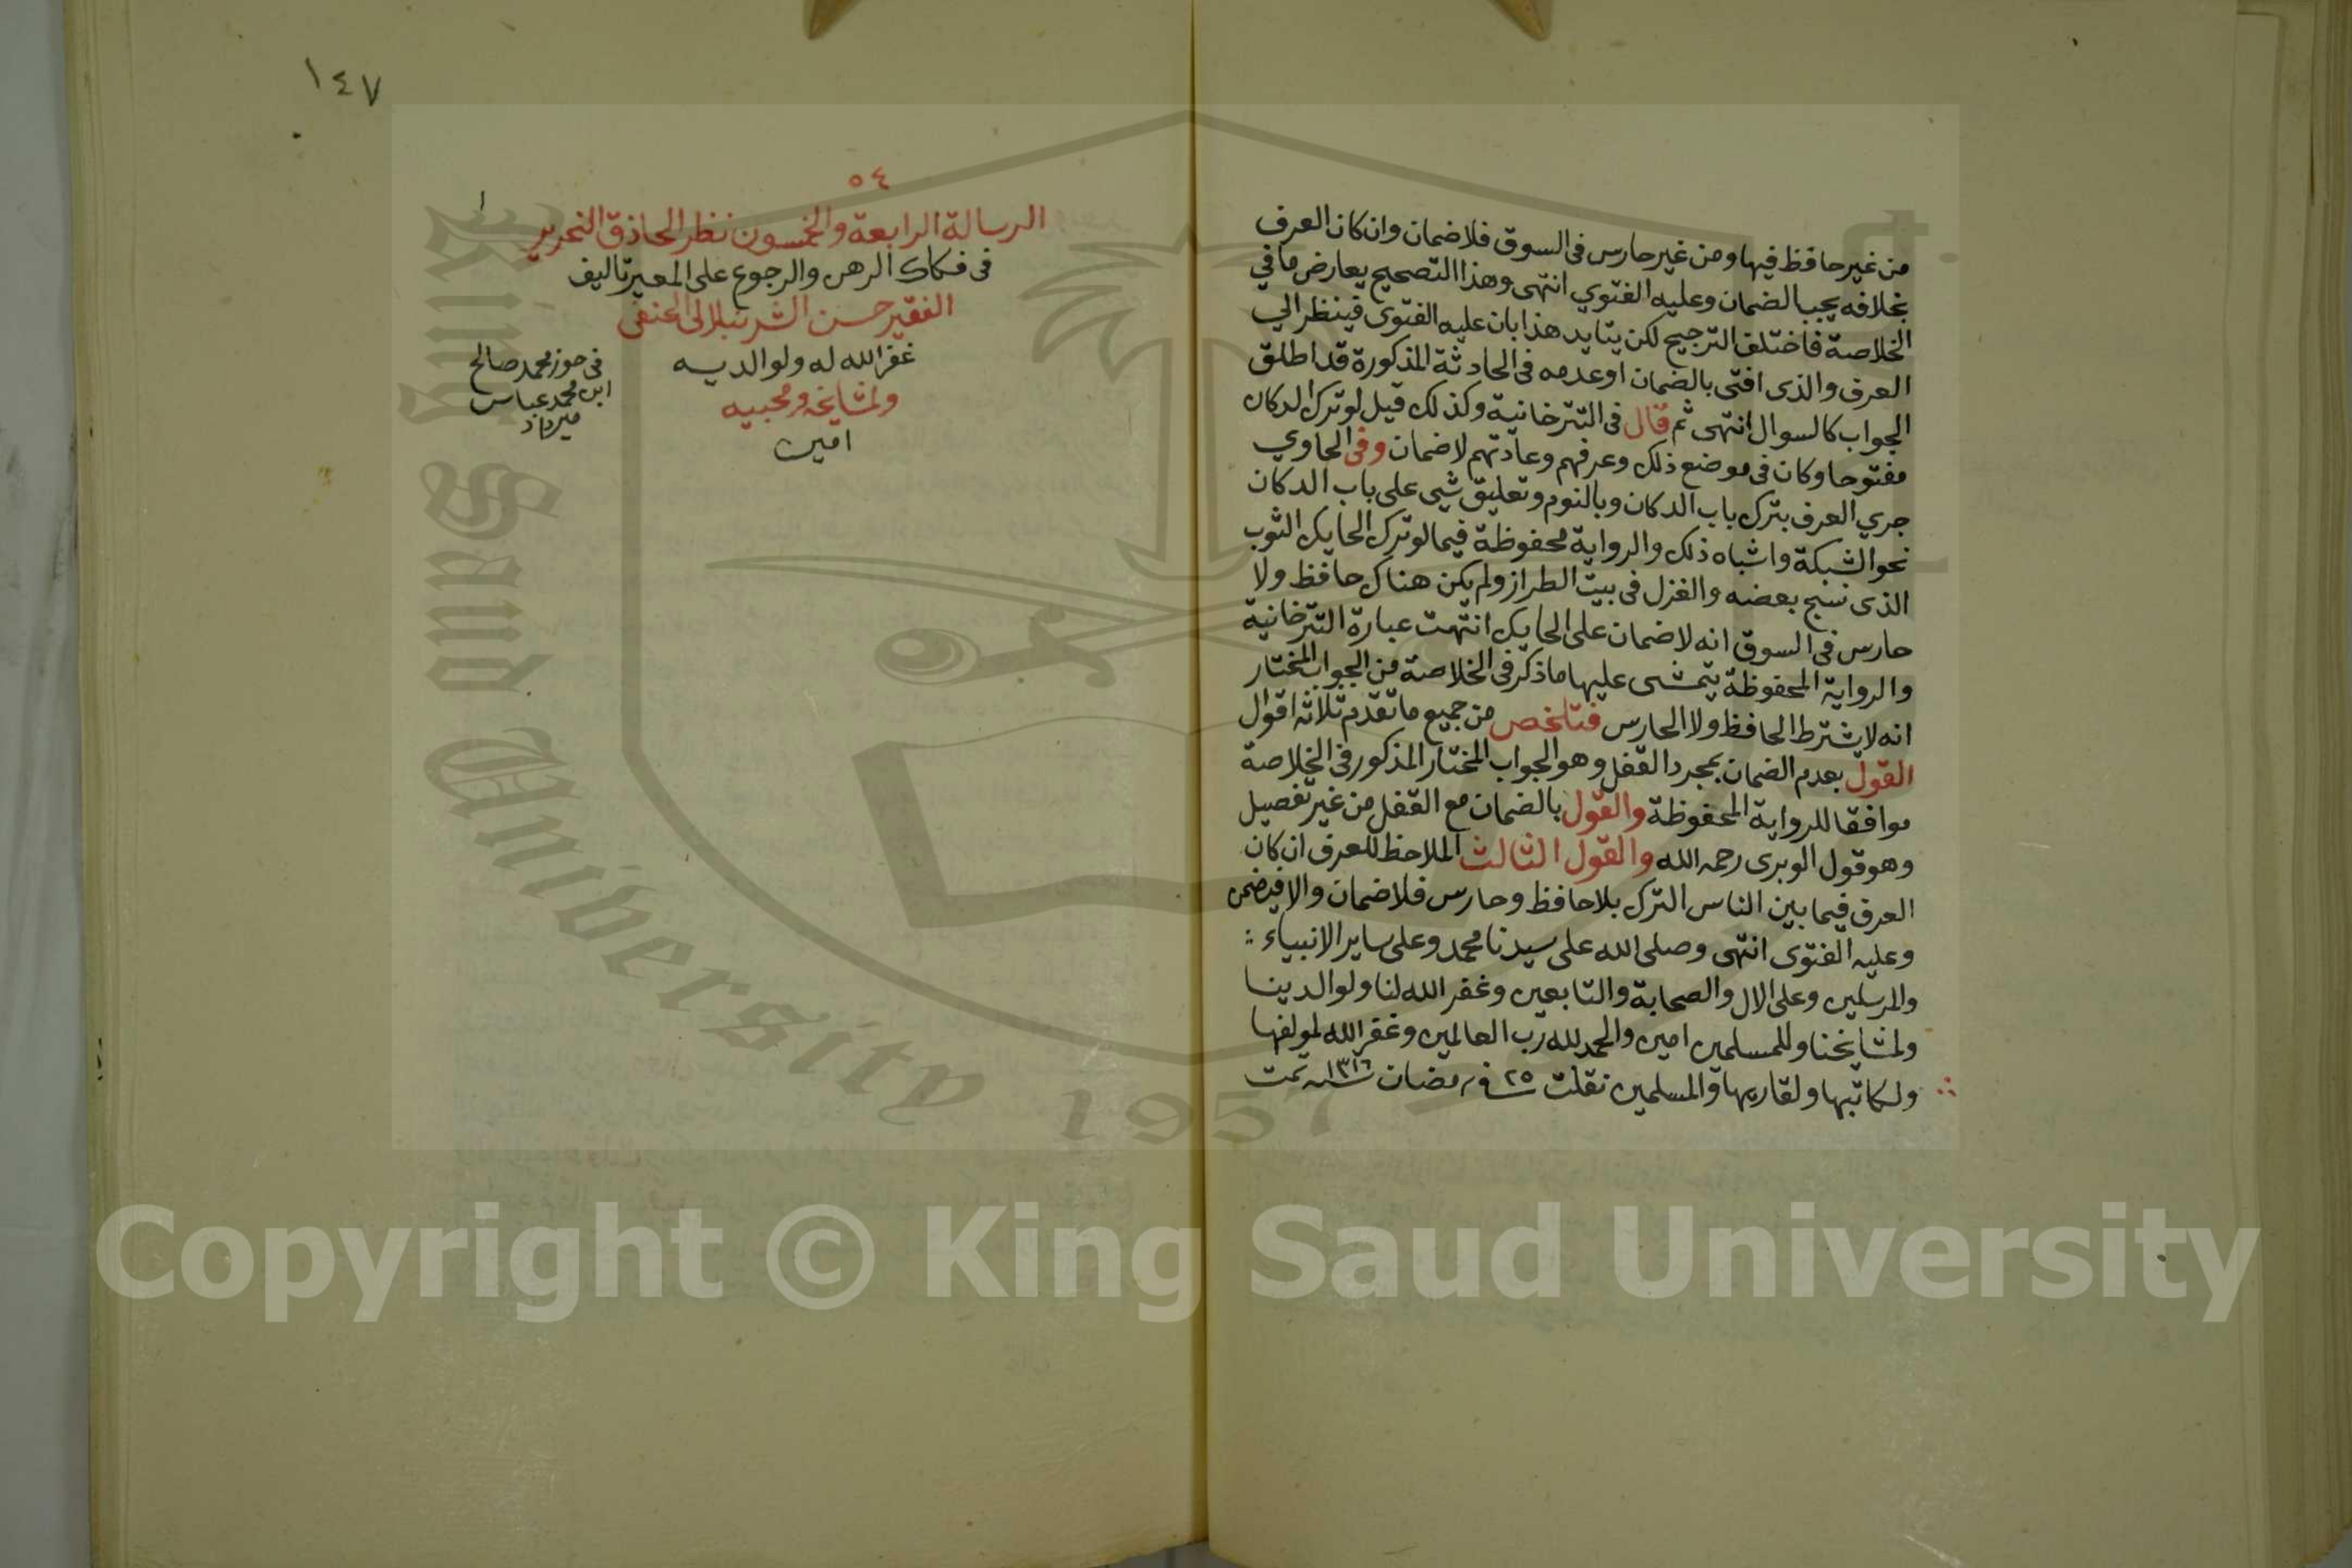 من غير حافظ فيها ومن غير حارس فى السوق فلا ضمان وان كان العرف
بخلافه يجب الضمان وعليه الفتوي انتهى وهذا التصحيح يعارض ما في
الخلاصة فاختلف الترجيح لكن يتايد هذا بان عليه الفتوى فينظر الي
العرف والذى افتى بالضمان او عدمه فى الحادثة المذكورة قد اطلق
الجواب كالسوال انتهى ثم قال فى التترخانية وكذلك قيل لو ترك الدكان
مفتوحا وكان فى موضع ذلك وعرفهم وعادتهم لا ضمان وفى الحاوي
جري العرف بترك باب الدكان وبالنوم وتعليق شى على باب الدكان
نحو الشبكة واشباه ذلك والرواية محفوظة فيما لو ترك الحايك الثوب
الذى نسج بعضه والغزل فى بيت الطراز ولم يكن هناك حافظ ولا
حارس فى السوق انه لا ضمان على الحايك انتهت عبارة التترخانية
والرواية المحفوظة يتمشى عليها ما ذكر فى الخلاصة من الجواب المختار
انه لا يشترط الحافظ ولا الحارس فتلخص من جميع ما تقدم ثلاثه اقوال
القول بعدم الضمان بمجرد القفل وهو الجواب المختار المذكور فى الخلاصة
موافقا للرواية المحفوظة والقول بالضمان مع القفل من غير تفصيل
وهو قول الوبرى رحمه الله والقول الثالث الملاحظ للعرف ان كان
العرف فيما بين الناس الترك بلا حافظ وحارس فلا ضمان والا فيضمن
وعليه الفتوى انتهى وصلى الله على سيدنا محمد وعلى ساير الانبياء
والمرسلين وعلى الال والصحابة والتابعين وغفر الله لنا ولوالدينا
ولمشايخنا وللمسلمين امين والحمد لله رب العالمين وغفر الله لمولفها
ولكاتبها ولقاريها والمسلمين نقلت ٢٥ فى رمضان سنه ١٣١٦ تمت
١٤٧
٥٤
الرسالة الرابعة والخمسون نظر الحاذق النحرير
فى فكاك الرهن والرجوع على المعير تاليف
الفقير حسن الشرنبلالى الحنفى
غفر الله له ولوالديه
ولمشايخه ومحبيه
امين
فى حوز محمد صالح
ابن محمد عباس
ميرداد
King Saud University
1957
Copyright © King Saud University